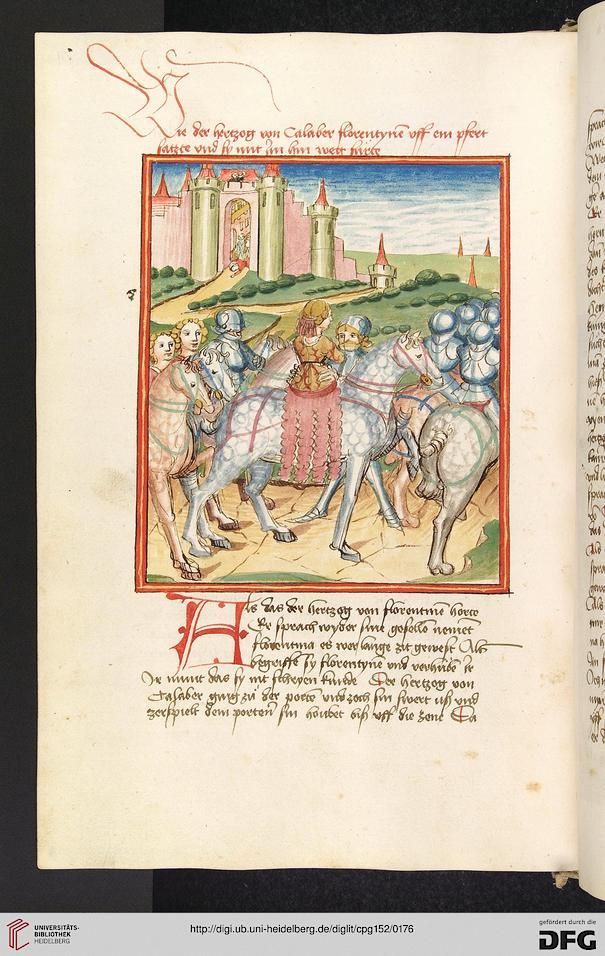 Wie der hertzog von Calaber florentyne uff ein pfert
satzte und sy mit im hin weg furte
Als das der hertzog von florentine horte
Er sprach wyder sine geselle nement
florentina es wer lange zit gewest Alss
begreiffe sy florentyne und verhub ir
den munt das sy nit schryen kunde Der hertzog von
Calaber ging zu der porte und zoch sin swert uss und
zerspielt dem porten sin houbet biss uff die zene Da
UNIVERSITÄTS-
BIBLIOTHEK
HEIDELBERG
http://digi.ub.uni-heidelberg.de/diglit/cpg152/0176
gefördert durch die
DFG